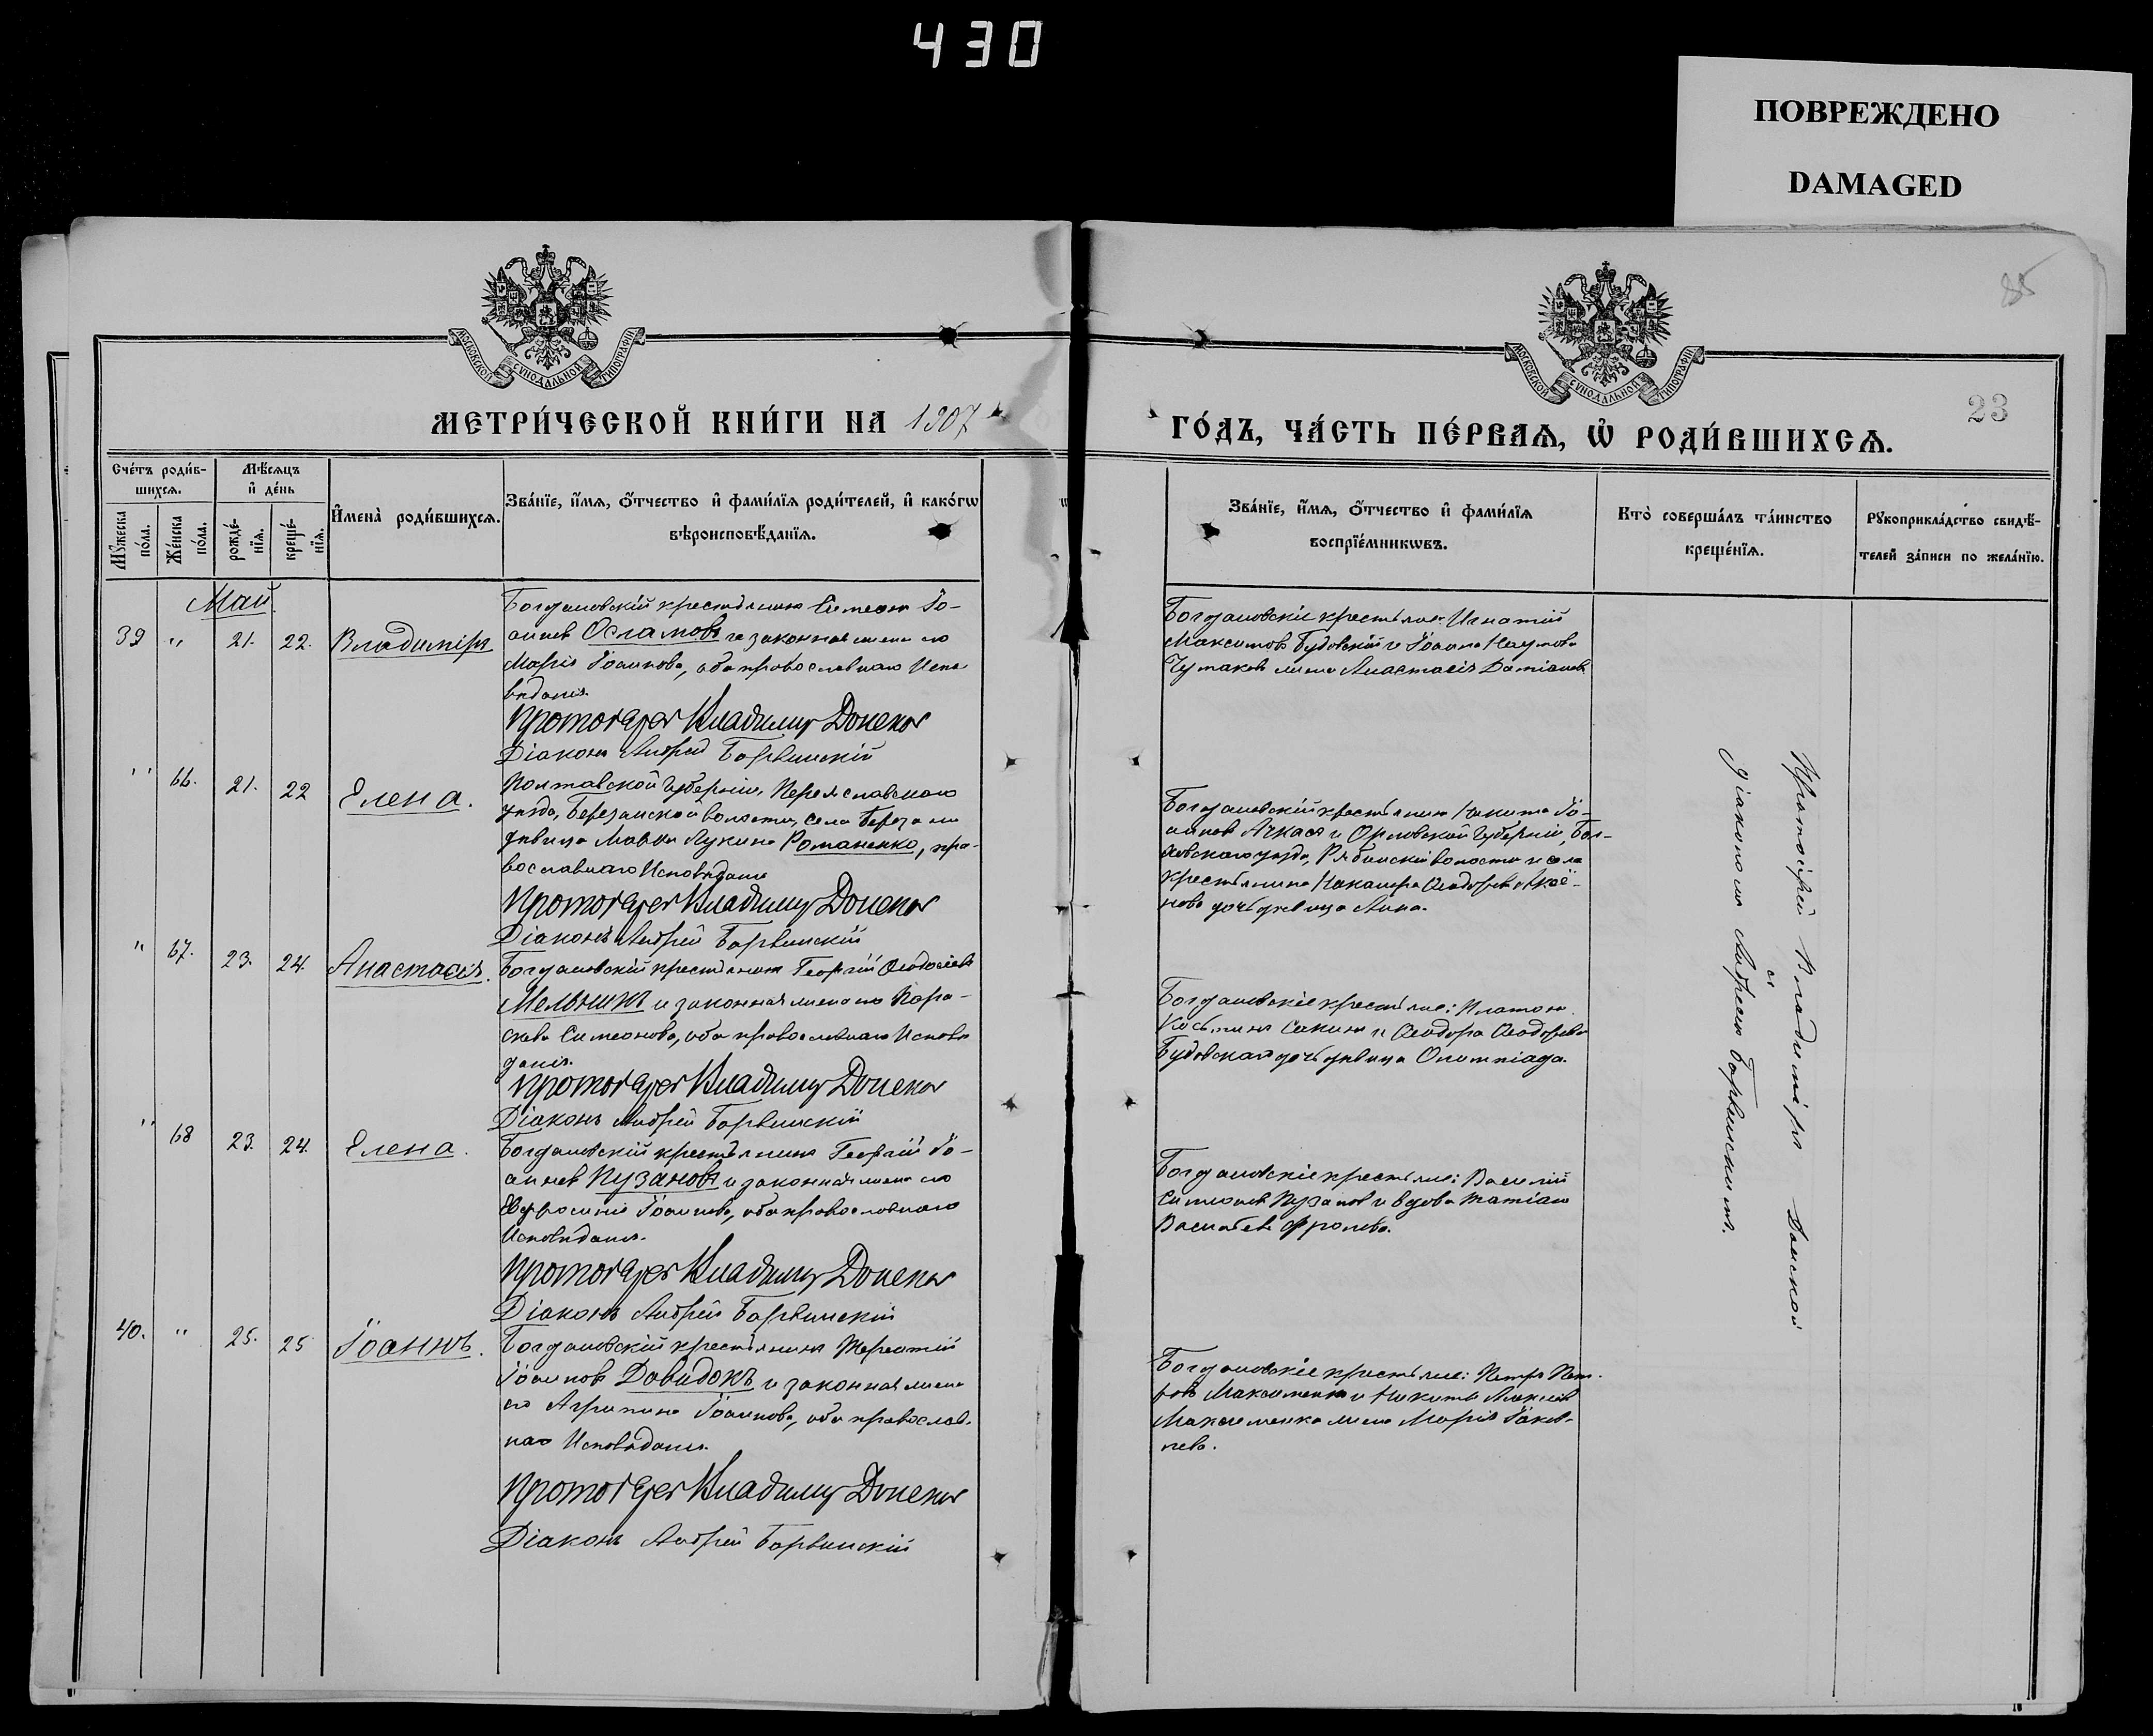 430
ПОВРЕЖДЕНО
DAMAGED
МОСКОВСКОЙ СѴНОДАЛЬНОЙ ТИПОГРАФІИ
МОСКОВСКОЙ СѴНОДАЛЬНОЙ ТИПОГРАФІИ
85
23
МЕТРИ́ЧЕСКОЙ КНИ́ГИ НА 1907
ГО́ДЪ, ЧА́СТЬ ПЕ́РВАѦ, Ѡ҆ РОДИ́ВШИХСѦ.
Сче́тъ роди́в-
шихсѧ.
Мꙋ́жеска по́ла.
Же́нска по́ла.
Мѣ́сѧцъ
и҆ де́нь
рожде́-
нїѧ.
креще́-
нїѧ.
И҆мена̀ роди́вшихсѧ.
Зва́нїе, и҆́мѧ, ѻ҆́тчество и҆ фами́лїѧ роди́телей, и҆ како́гѡ
вѣроисповѣ́данїѧ.
Зва́нїе, и҆́мѧ, ѻ҆́тчество и҆ фами́лїѧ
воспрїе́мникѡвъ.
Кто̀ соверша́лъ та́инство
креще́нїѧ.
Рꙋкоприкла́дство свидѣ́-
телей за́писи по жела́нїю.
Май.
39 " 21. 22. Владимiръ
Богдановскій крестьянинъ Симеонъ Іо-
анновъ Осламовъ и законная жена его
Марія Іоаннова, оба православнаго Испо
вѣданія.
Протоіерей Владимиръ Донской
Діаконъ Андрей Барвинскій
Богдановскіе крестьяне: Игнатій
Максимовъ Будовскій и Іоанна Наумова
Чумакова жена Анастасія Даміанова
" 66. 21. 22 Елена.
Полтавской Губерніи, Переяславскаго
уѣзда, Березанской волости, села Березани
дѣвица Марѳа Лукина Романенко, пра-
вославнаго Исповѣданія
Протоіерей Владимиръ Донской
Діаконъ Андрей Барвинскій
Богдановскій крестьянинъ Никита Іо-
анновъ и Орловской Губерніи, Бол-
ховскаго уѣзда, волости и села
крестьянина Ѳеодорова
дочь дѣвица Анна.
" 67. 23. 24. Анастасія.
Богдановскій крестьянинъ Георгій Ѳеодосіевъ
Мельникъ и законная жена его Пара-
скева Симеонова, оба православнаго Исповѣ
данія.
Протоіерей Владимиръ Донской
Діаконъ Андрей Барвинскій
Богдановскіе крестьяне: Платонъ
Косьминъ и Ѳеодора Ѳеодорова
Будовскаго дочь дѣвица Олимпіада.
" 68 23. 24. Елена.
Богдановскій крестьянинъ Георгій Іо-
анновъ Пузановъ и законная жена его
Евфросинія Іоаннова, оба православнаго
Исповѣданія.
Протоіерей Владимиръ Донской
Діаконъ Андрей Барвинскій
Богдановскіе крестьяне: Василій
Симеоновъ Пузановъ и вдова Татіана
Васильева Фролова.
40. " 25. 25 Іоаннъ.
Богдановскій крестьянинъ Терентій
Іоанновъ Давидокъ и законная жена
его Агрипина Іоаннова, оба православ-
наго Исповѣданія.
Протоіерей Владимиръ Донской
Діаконъ Андрей Барвинскій
Богдановскіе крестьяне: Петръ Пет-
ровъ Максименко и Никиты
Максименка жена Марія Іаков-
лева.
Протоіерей Владиміръ Донской
съ
діакономъ Андреемъ Барвинскимъ.